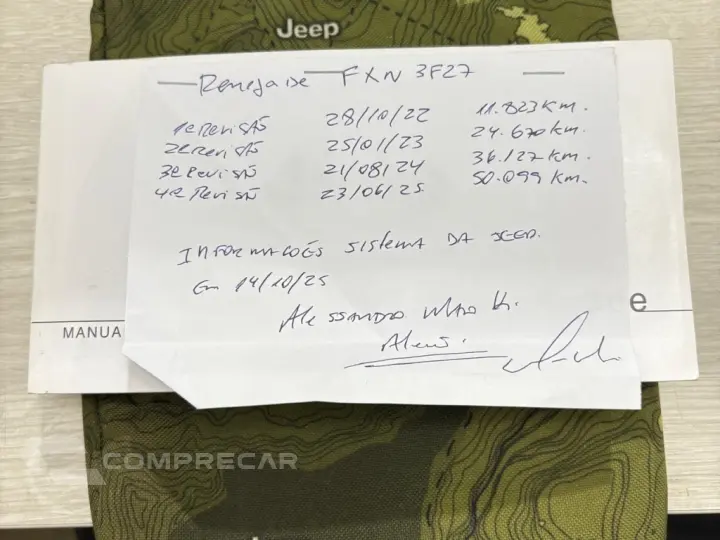 Jeep
Renegade FXN 3F27
1ª Revisão 28/10/22 11.823 Km.
2ª Revisão 25/01/23 24.670 Km.
3ª Revisão 21/08/24 36.127 Km.
4ª Revisão 23/06/25 50.099 Km.
INFORMAÇÕES SISTEMA DA JEEP.
Em 14/10/25
Alessandro
MANUA
e
COMPRECAR